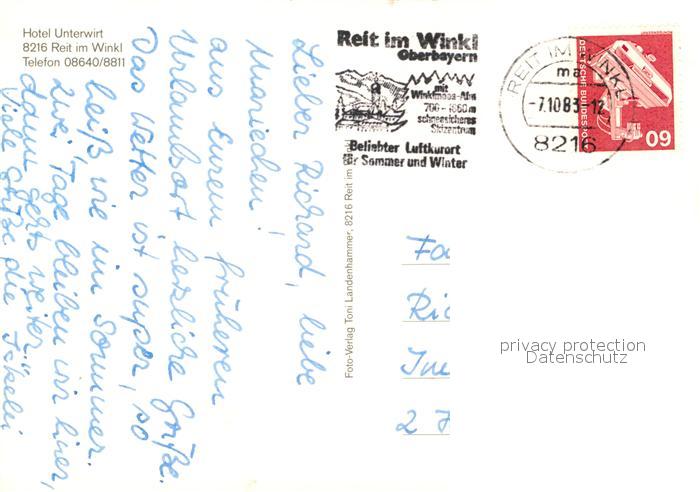 Hotel Unterwirt
8216 Reit im Winkl
Telefon 08640/8811
Lieber Richard, liebe
Mariechen!
aus Eurem früheren
Urlaubsort herzliche Grüße.
Das Wetter ist super, so
heiß wie im Sommer.
Zwei Tage bleiben wir hier,
dann geht's weiter.
Viele Grüße die
Foto-Verlag Toni Landenhammer, 8216 Reit im
Reit im Winkl
Oberbayern
mit
Winklmoos-Alm
700 - 1860 m
schneesicheres
Skizentrum
Beliebter Luftkurort
für Sommer und Winter
REIT IM WINKL
ma
-7.10.83-12
8216
DEUTSCHE BUNDESPOST
60
Fa
Ric
Im
2 H
privacy protection
Datenschutz